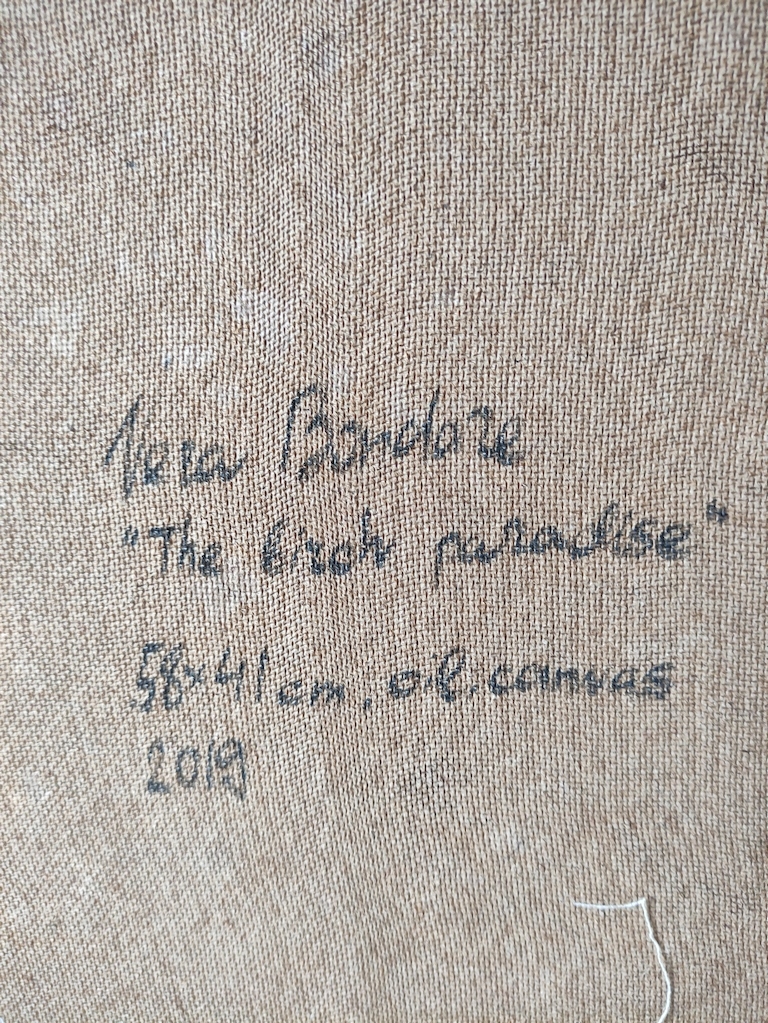 Vera Bondare
"The birch paradise"
58x41 cm, oil. canvas
2019